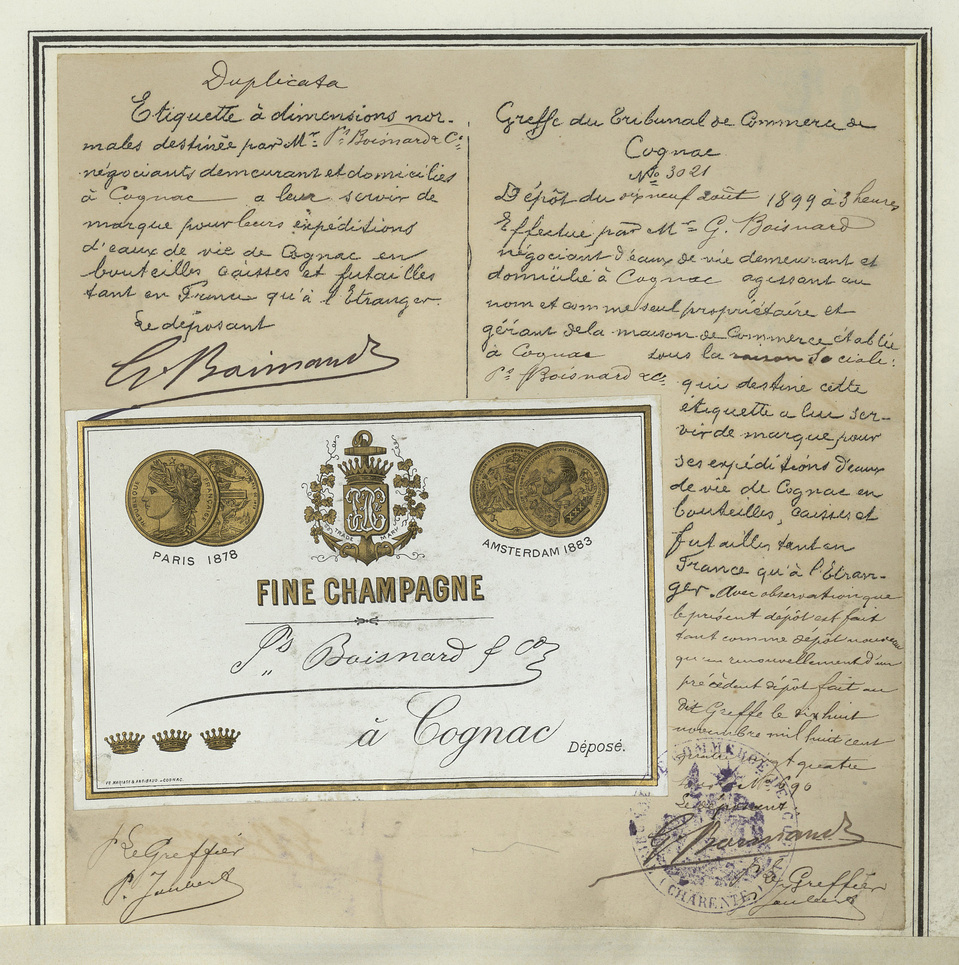 Duplicata
Etiquette à dimensions nor-
males destinée par Mr. Ps. Boisnard & Co.
négociants demeurant et domiciliés
à Cognac a leur servir de
marque pour leurs expéditions
d'eaux de vie de Cognac en
bouteilles caisses et futailles
tant en France qu'à l'Etranger.
Le déposant
G. Boisnard
Greffe du Tribunal de Commerce de
Cognac
No 3021
Dépôt du dix neuf août 1899 à 3 heures
Effectué par Mr G. Boisnard
négociant d'eaux de vie demeurant et
domicilié à Cognac agissant au
nom et comme seul propriétaire et
gérant de la maison de Commerce établie
à Cognac sous la raison sociale:
Ps. Boisnard & Co.
qui destine cette
étiquette a lui ser-
vir de marque pour
ses expéditions d'eaux
de vie de Cognac en
bouteilles, caisses et
futailles tant en
France qu'à l'Etran-
ger. Avec observation que
le présent dépôt est fait
tant comme dépôt nouveau
qu'en renouvellement d'un
précédent dépôt fait au
dit Greffe le dix huit
novembre mil huit cent
quatre vingt quatre
No 690
Le déposant
G. Boisnard
P. Le Greffier
Joubert
COMMERCE DE
(CHARENTE)
REPUBLIQUE FRANÇAISE
PARIS 1878
TRADE MARK
AMSTERDAM 1883
FINE CHAMPAGNE
Ps Boisnard & Co
à Cognac
Déposé.
P. Le Greffier
P. Joubert